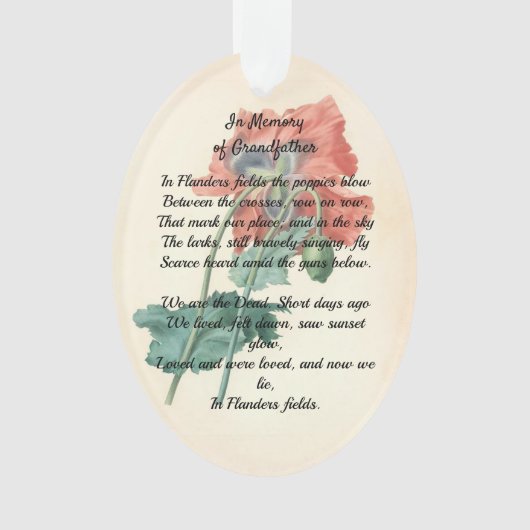 In Memory
of Grandfather
In Flanders fields the poppies blow
Between the crosses, row on row,
That mark our place; and in the sky
The larks, still bravely singing, fly
Scarce heard amid the guns below.
We are the Dead. Short days ago
We lived, felt dawn, saw sunset
glow,
Loved and were loved, and now we
lie,
In Flanders fields.